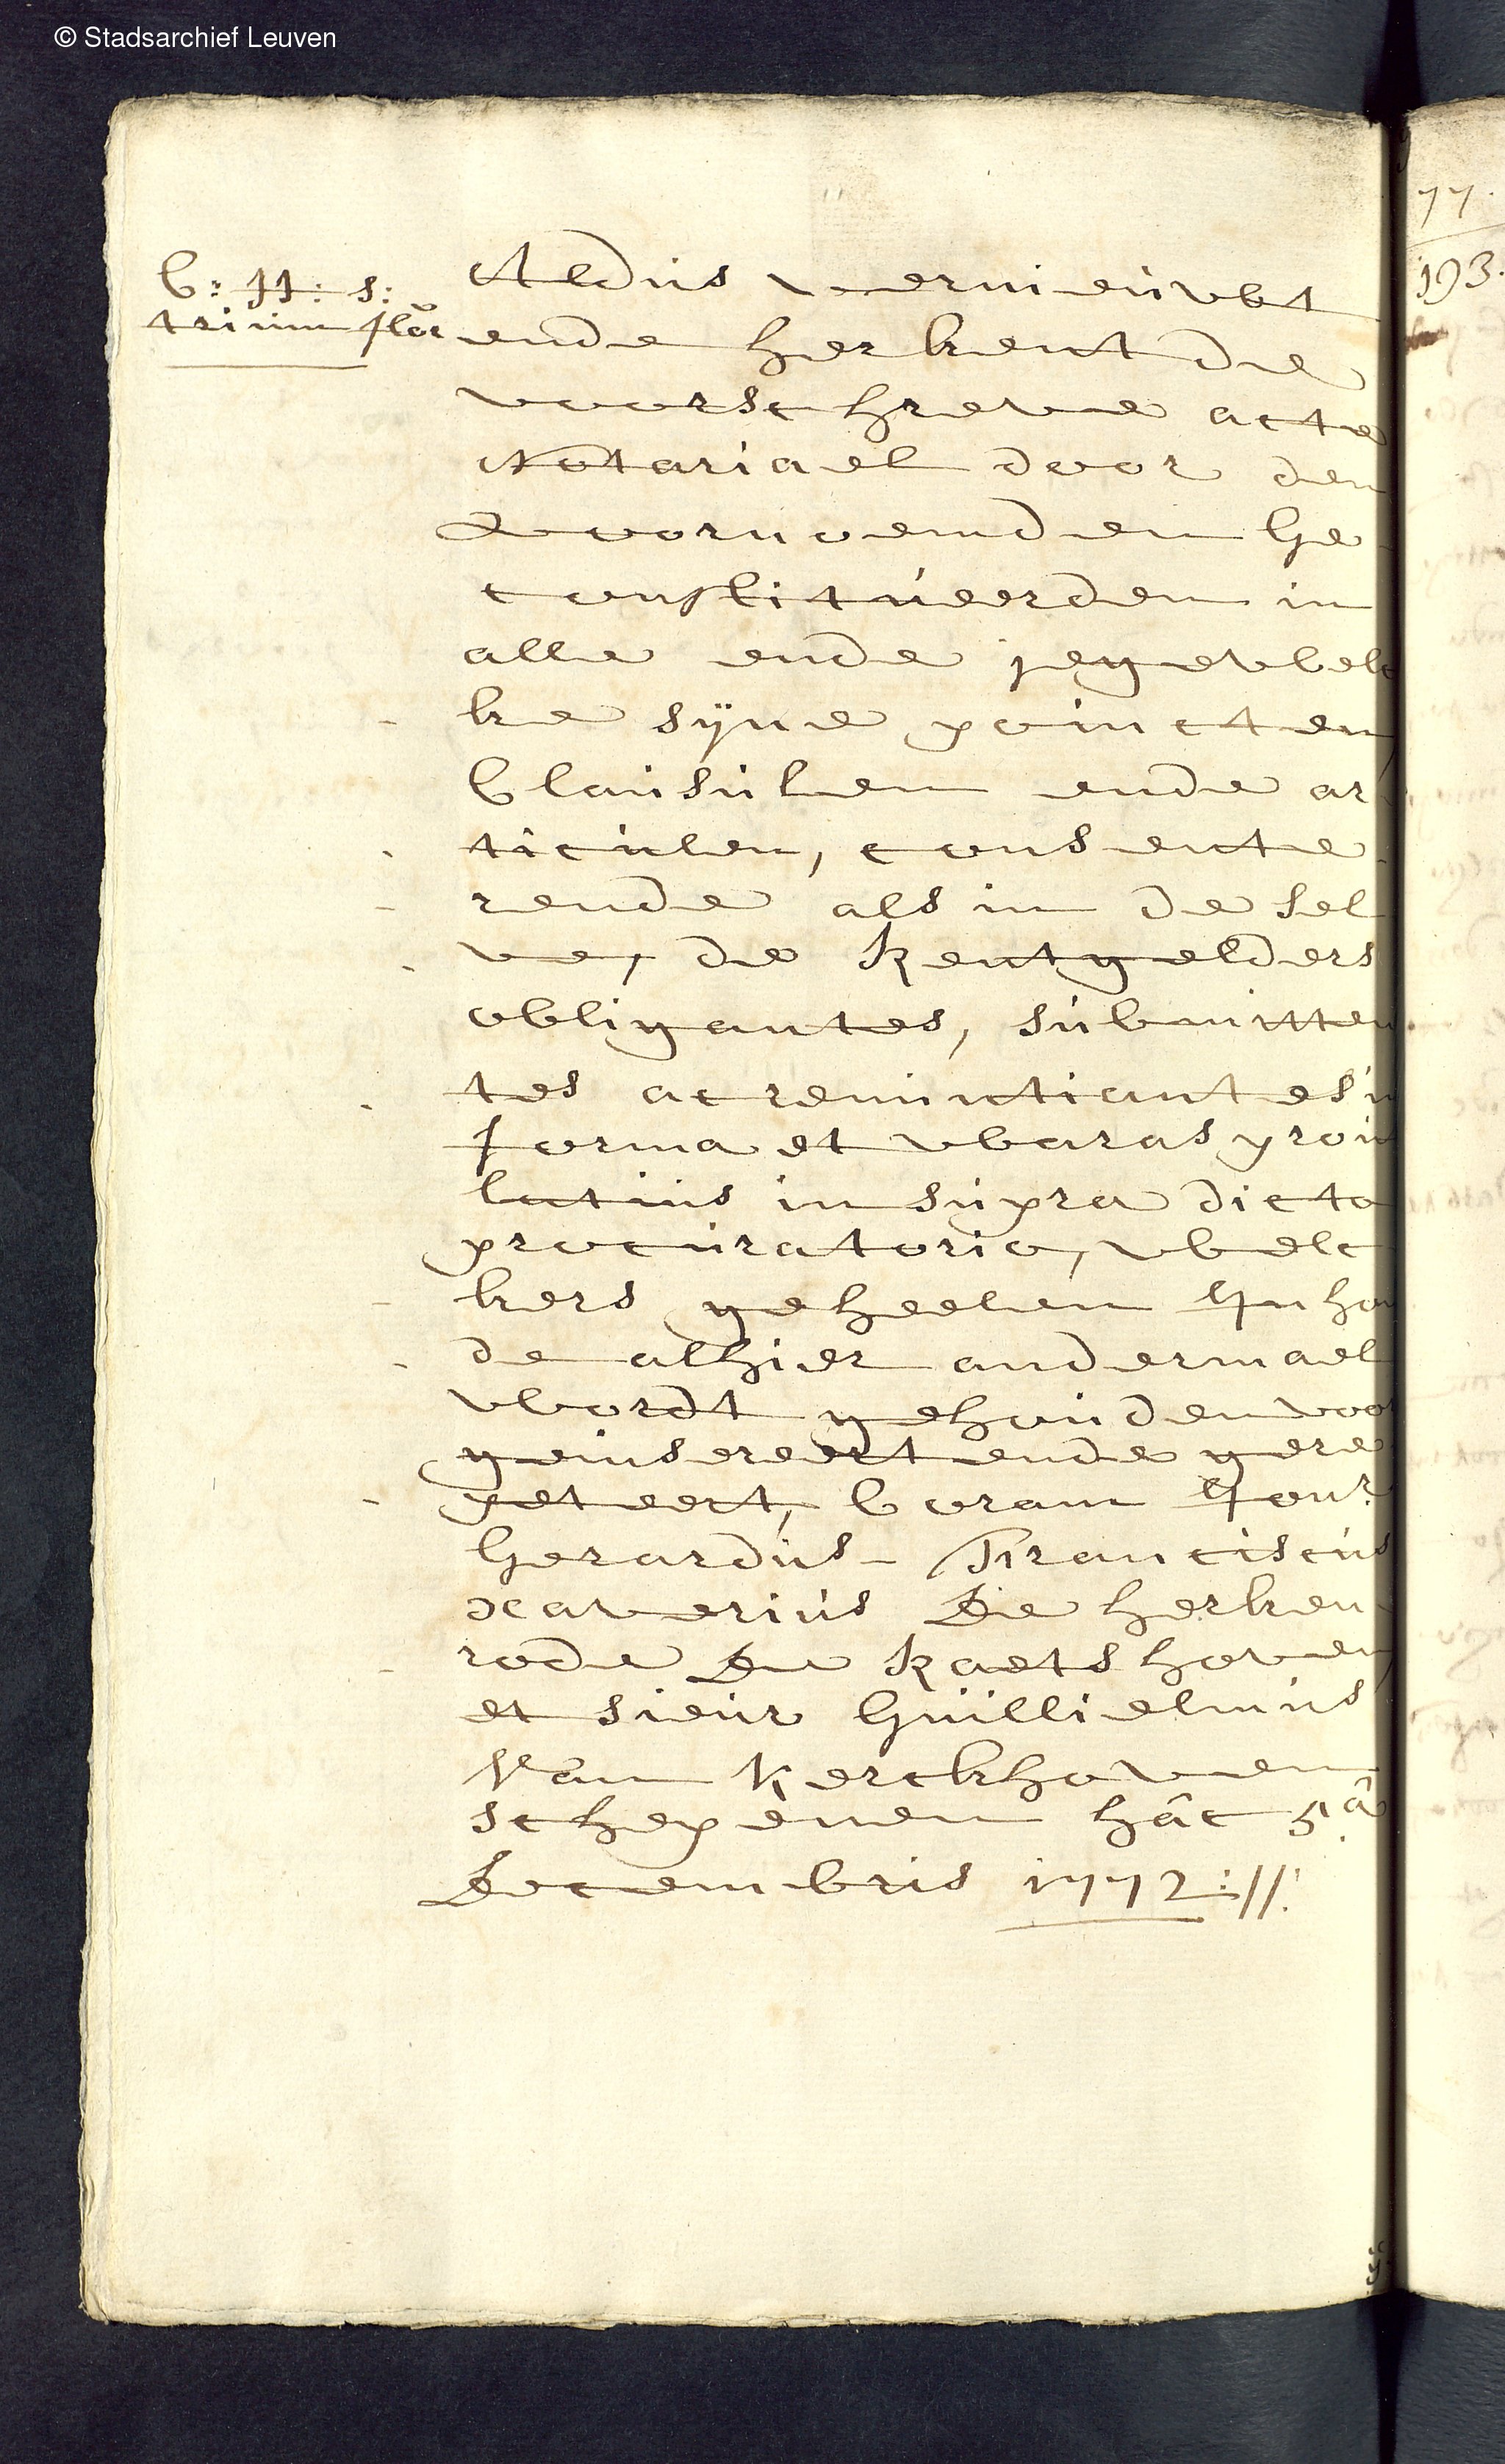 © Stadsarchief Leuven
C: H: s:
trium flor
Aldus vernieuwt
ende herkent de
voorschreve acte
Notariael door den
voornoemden Ge
constitueerden in
alle ende jegewelc
ke sijne poincten
Clausulen ende ar
ticulen, consente
rende als in de sel
ve, de Rentgelders
obligantes, submitten
tes ac renuntiantes in
forma et waras prou
latius in supra dicto
procuratorio, welc
kers geheelen Inhou
de alhier andermael
wordt gehouden voor
geinsereert ende gere
peteert, Coram Jonr
Gerardus Franciscus
Xaverius De Herken
rode De Raetshoven
et sieur Guillielmus
Van Kerckhoven
schepenen hâc 5â
Decembris 1772://
77.
193.